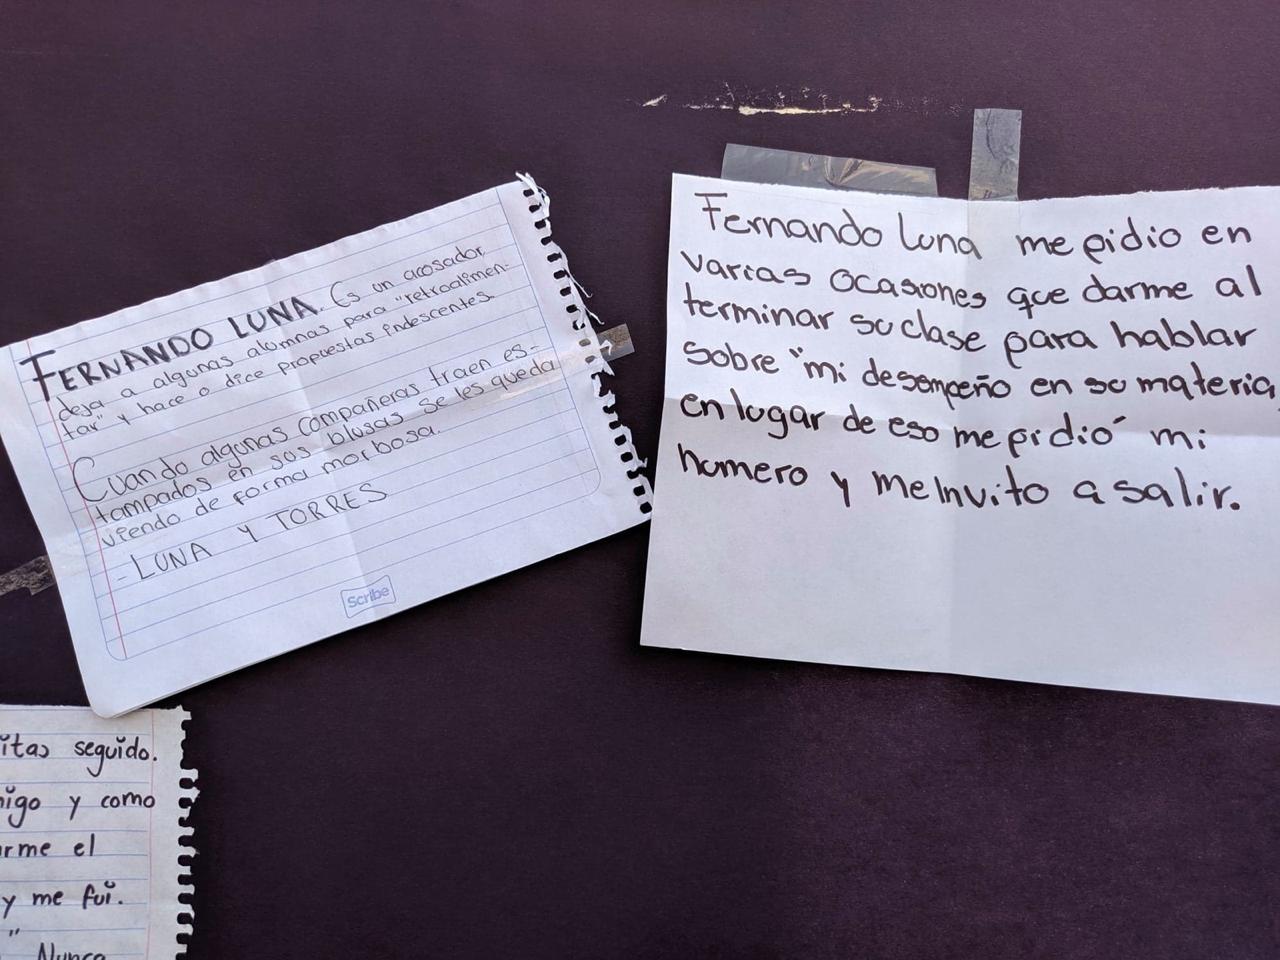 FERNANDO LUNA. Es un acosador,
deja a algunas alumnas para "retroalimen-
tar" y hace o dice propuestas indescentes.
Cuando algunas compañeras traen es-
tampados en sus blusas se les queda
viendo de forma morbosa.
- LUNA Y TORRES
Scribe
Fernando luna me pidio en
varias ocasiones que darme al
terminar su clase para hablar
sobre "mi desempeño en su materia,
en lugar de eso me pidio´ mi
numero y me Invito a salir.
itas seguido.
igo y como
rme el
y me fui.
"
Nunca